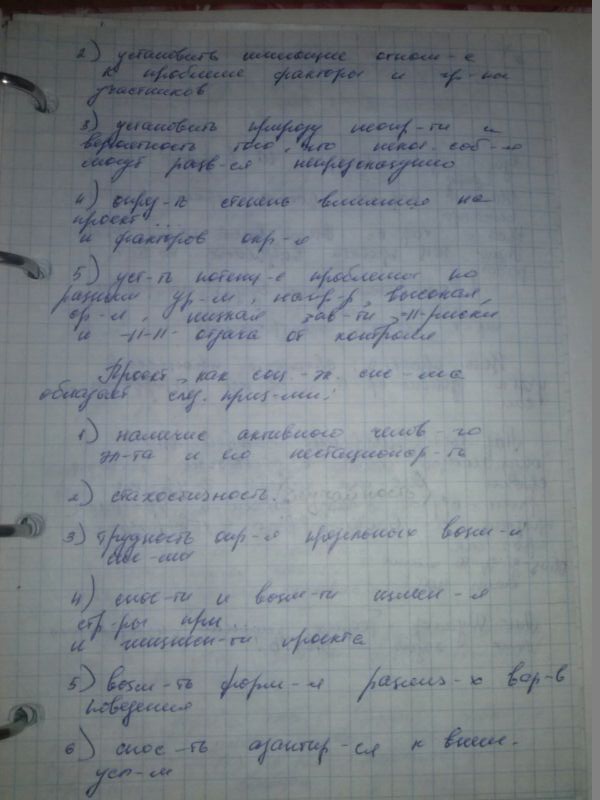 2) установить имеющие отнош-е
к проблеме факторы и гр-пы
участников
3) установить природу неопр-ти и
вероятность того, что некот. соб-я
могут разв-ся непредсказуемо
4) опру-ть степень влияния на
проект...
и факторов окр-я
5) уст-ть потенц-е проблемы по
разным ур-м, напр-р, высокая,
ср-я, низкая зав-ти, -11- риски,
и -11-11- отдача от контроля
Проект, как соц.-эк. сис-ма
обладает след. приз-ми:
1) наличие активного челов-го
эл-та и его нестационар-ть
2) стохостичность.
3) трудность опр-я предельных возм-й
сис-мы
4) спос-ти и возм-ти измен-я
стр-ры при...
и жизнен-ти проекта
5) возм-ть форм-я рацион-х вар-в
поведения
6) спос-ть адаптир-ся к внеш.
усл-м